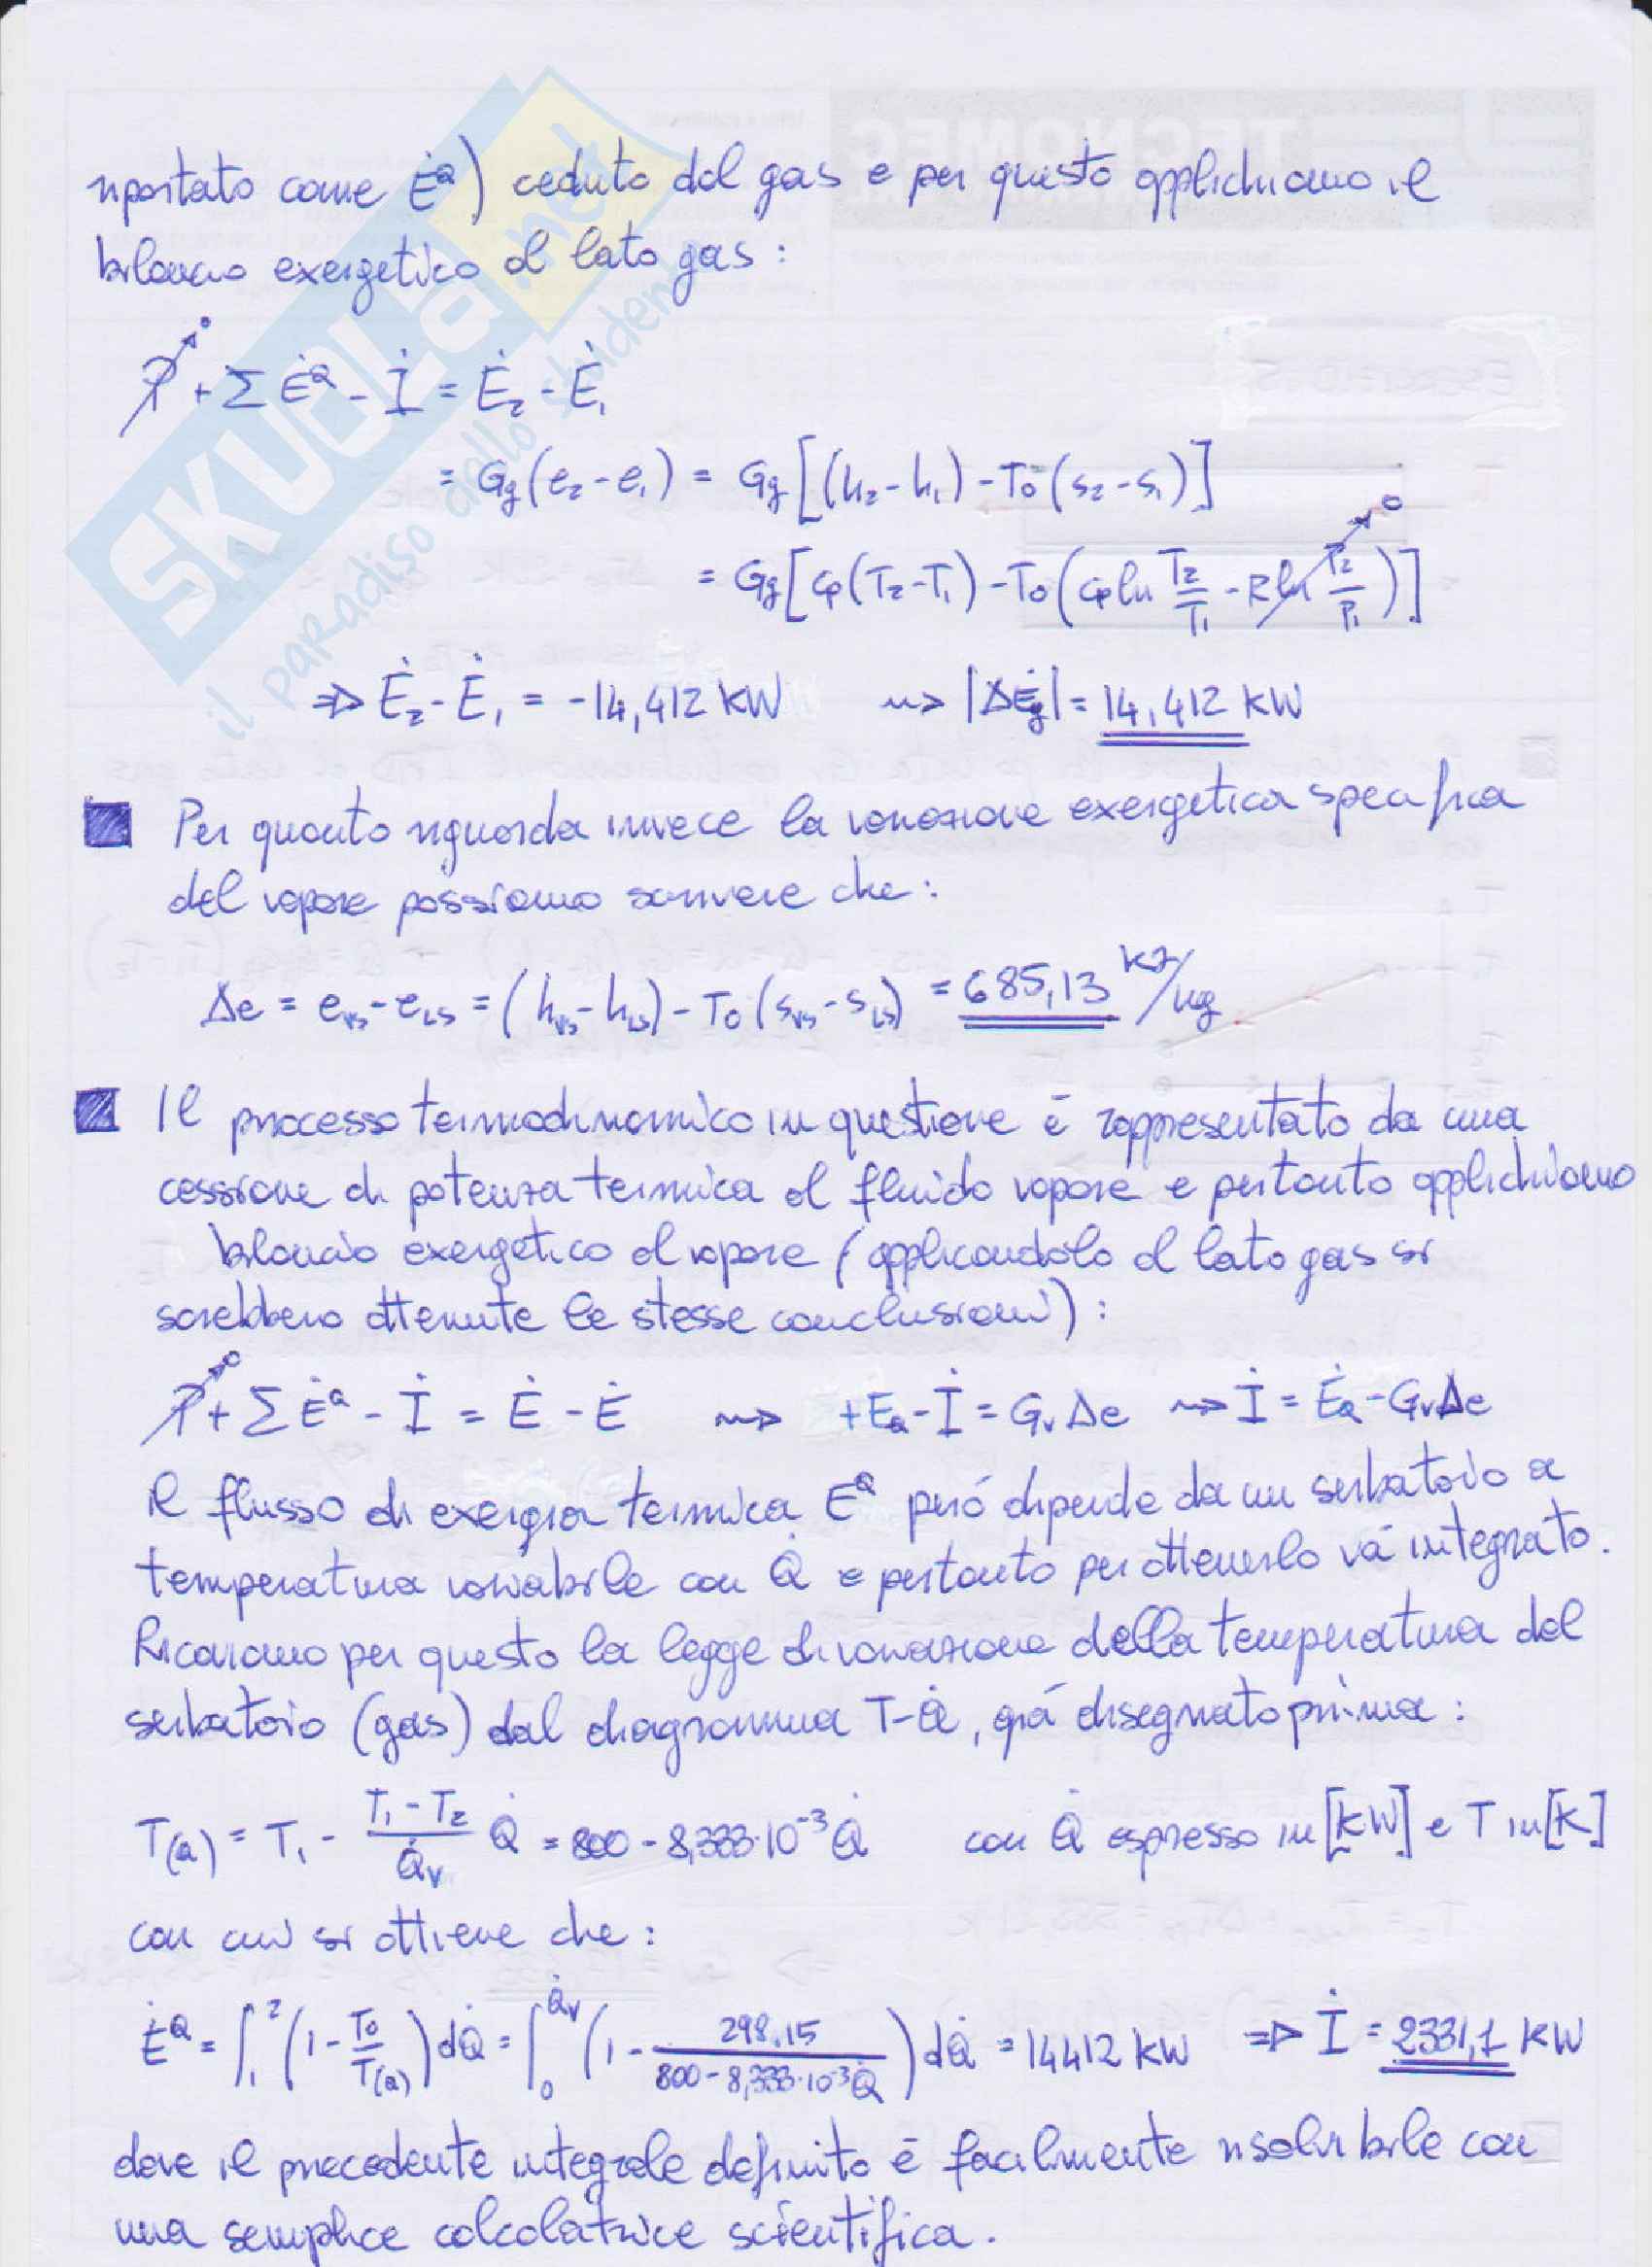 riportato come Ė^Q) ceduto dal gas e per questo applichiamo il
bilancio exergetico al lato gas :
P→0 + Σ Ė^Q - İ = Ė₂ - Ė₁
= Gg(e₂-e₁) = Gg[(h₂-h₁)-T₀(s₂-s₁)]
= Gg[cp(T₂-T₁)-T₀(cp ln T₂/T₁ - R ln P₂/P₁ →0)]
⇒ Ė₂-Ė₁ = -14,412 kW ⇝ |ΔĖg| = 14,412 kW
Per quanto riguarda invece la variazione exergetica specifica
del vapore possiamo scrivere che :
Δe = e_VS - e_LS = (h_VS - h_LS) - T₀(s_VS - s_LS) = 685,13 kJ/kg
Il processo termodinamico in questione è rappresentato da una
cessione di potenza termica al fluido vapore e pertanto applichiamo
bilancio exergetico al vapore (applicandolo al lato gas si
sarebbero ottenute le stesse conclusioni) :
P→0 + Σ Ė^Q - İ = Ė - Ė ⇝ +E_Q - İ = Gv Δe ⇝ İ = Ė_Q - Gv Δe
il flusso di exergia termica E^Q però dipende da un serbatoio a
temperatura variabile con Q̇ e pertanto per ottenerlo và integrato.
Ricaviamo per questo la legge di variazione della temperatura del
serbatoio (gas) dal diagramma T-Q̇, già disegnato prima :
T(Q) = T₁ - (T₁ - T₂)/Q̇v Q̇ = 800 - 8,333·10⁻³ Q̇ con Q̇ espresso in [kW] e T in [K]
con cui si ottiene che :
Ė^Q = ∫₁² (1 - T₀/T(Q)) dQ̇ = ∫₀^Q̇v (1 - 298,15/(800 - 8,333·10⁻³ Q̇)) dQ̇ = 14412 kW ⇒ İ = 2331,1 kW
dove il precedente integrale definito è facilmente risolvibile con
una semplice calcolatrice scientifica.
SKUOLA.net
il paradiso dello studente
TECNOMEC